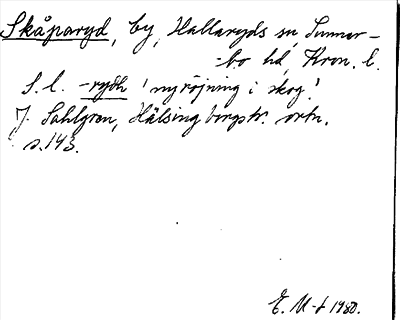 Skåparyd, by, Hallaryds sn, Sunner-
-bo hd, Kron. l.
S.l. -rydh 'nyröjning i skog'
J. Sahlgren, Hälsingborgstr. ortn.
s. 143.
E. M-f 1980.